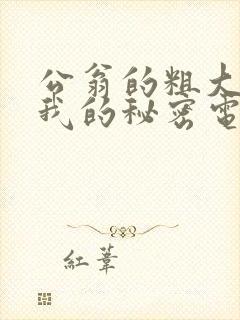 公翁的粗大
我的秘密電
红葦